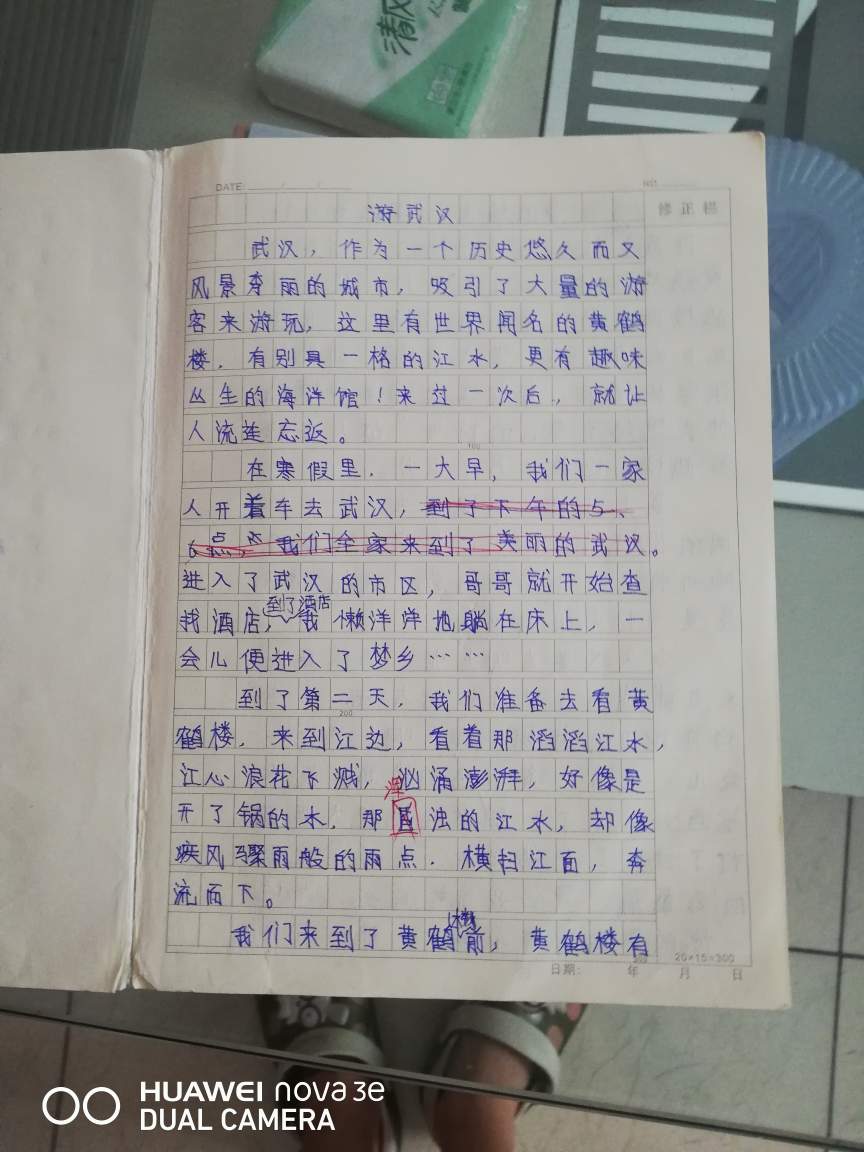 清风
DATE
NO.
游武汉
修正栏
武汉，作为一个历史悠久而又
风景秀丽的城市，吸引了大量的游
客来游玩，这里有世界闻名的黄鹤
楼，有别具一格的江水，更有趣味
丛生的海洋馆！来过一次后，就让
人流连忘返。
100
在寒假里，一大早，我们一家
人开着车去武汉，到了下午的5、
6点，我们全家来到了美丽的武汉。
进入了武汉的市区，哥哥就开始查
到了酒店
找酒店，我懒洋洋地躺在床上，一
会儿便进入了梦乡……
到了第二天，我们准备去看黄
200
鹤楼，来到江边，看着那滔滔江水，
江心浪花飞溅，汹涌澎湃，好像是
开了锅的水，那浊的江水，却像
混
疾风骤雨般的雨点，横扫江面，奔
流而下。
楼
我们来到了黄鹤前，黄鹤楼有
20×15=300
日期： 年 月 日
HUAWEI nova 3e
DUAL CAMERA